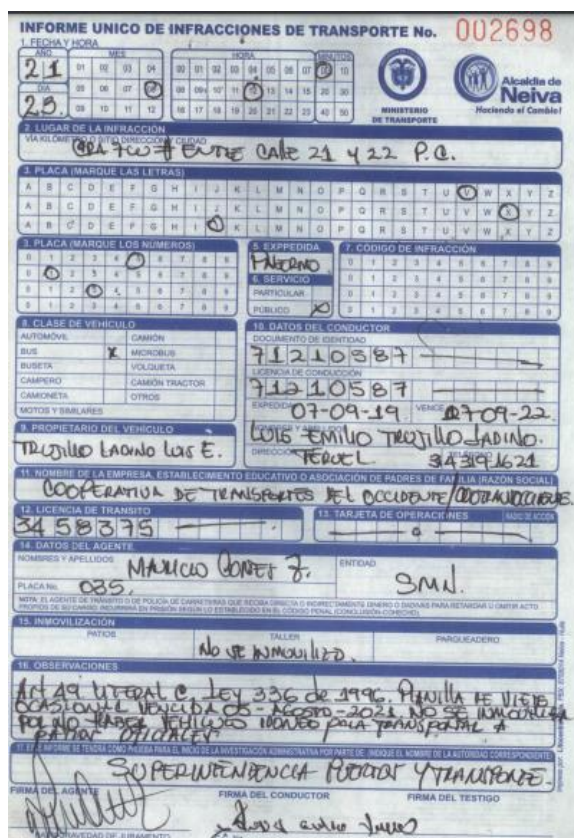 INFORME UNICO DE INFRACCIONES DE TRANSPORTE No. 002698
1. FECHA Y HORA
AÑO MES HORA MINUTOS
21 01 02 03 04 00 01 02 03 04 05 06 07 00 10
DIA 05 06 07 08 08 09 10 11 12 13 14 15 20 30
25. 09 10 11 12 16 17 18 19 20 21 22 23 40 50
MINISTERIO DE TRANSPORTE
Alcaldía de Neiva
Haciendo el Cambio!
2. LUGAR DE LA INFRACCIÓN
VIA KILÓMETRO O SITIO DIRECCIÓN Y CIUDAD
CRA 7 ENTRE CALLE 21 Y 22 P.C.
3. PLACA (MARQUE LAS LETRAS)
A B C D E F G H I J K L M N O P Q R S T U V W X Y Z
A B C D E F G H I J K L M N O P Q R S T U V W X Y Z
A B C D E F G H I J K L M N O P Q R S T U V W X Y Z
3. PLACA (MARQUE LOS NÚMEROS)
0 1 2 3 4 5 6 7 8 9
0 1 2 3 4 5 6 7 8 9
0 1 2 3 4 5 6 7 8 9
5. EXPPEDIDA
6. SERVICIO
PARTICULAR
PUBLICO X
7. CÓDIGO DE INFRACCIÓN
0 1 2 3 4 5 6 7 8 9
0 1 2 3 4 5 6 7 8 9
0 1 2 3 4 5 6 7 8 9
0 1 2 3 4 5 6 7 8 9
8. CLASE DE VEHÍCULO
AUTOMÓVIL CAMIÓN
BUS X MICROBUS
BUSETA VOLQUETA
CAMPERO CAMIÓN TRACTOR
CAMIONETA OTROS
MOTOS Y SIMILARES
9. PROPIETARIO DEL VEHÍCULO
TRUJILLO LADINO LUIS E.
10. DATOS DEL CONDUCTOR
DOCUMENTO DE IDENTIDAD
71210587
LICENCIA DE CONDUCCIÓN
71210587
EXPEDIDA 07-09-19 VENCE 07-09-22
NOMBRES Y APELLIDOS
LUIS EMILIO TRUJILLO LADINO.
DIRECCIÓN TERUEL TELÉFONO 343191621
11. NOMBRE DE LA EMPRESA, ESTABLECIMIENTO EDUCATIVO O ASOCIACIÓN DE PADRES DE FAMILIA (RAZÓN SOCIAL)
COOPERATIVA DE TRANSPORTES DEL OCCIDENTE
12. LICENCIA DE TRANSITO
3458375
13. TARJETA DE OPERACIONES RADIO DE ACCIÓN
14. DATOS DEL AGENTE
NOMBRES Y APELLIDOS ENTIDAD
MAURICIO GOMEZ Z. SMN.
PLACA No. 035.
NOTA: EL AGENTE DE TRÁNSITO O DE POLICÍA DE CARRETERAS QUE RECIBA DIRECTA O INDIRECTAMENTE DINERO O DADIVAS PARA RETARDAR U OMITIR ACTO
PROPIOS DE SU CARGO, INCURRIRÁ EN PRISIÓN SEGÚN LO ESTABLECIDO EN EL CÓDIGO PENAL (CONCLUSIÓN-COHECHO).
15. INMOVILIZACIÓN
PATIOS TALLER PARQUEADERO
NO SE INMOVILIZO.
16. OBSERVACIONES
Art 49 LITERAL C. LEY 336 de 1996. PLANILLA DE VIAJE
OCASIONAL VENCIDA 05-AGOSTO-2021 NO SE INMOVILIZA
POR NO HABER VEHICULO IDONEO PARA TRANSPORTAR A
PATIOS OFICIALES
17. ESTE INFORME SE TENDRA COMO PRUEBA PARA EL INICIO DE LA INVESTIGACIÓN ADMINISTRATIVA POR PARTE DE. (INDIQUE EL NOMBRE DE LA AUTORIDAD CORRESPONDIENTE)
SUPERINTENDENCIA PUERTOS Y TRANSPORTE.
FIRMA DEL AGENTE FIRMA DEL CONDUCTOR FIRMA DEL TESTIGO
GRAVEDAD DE JURAMENTO